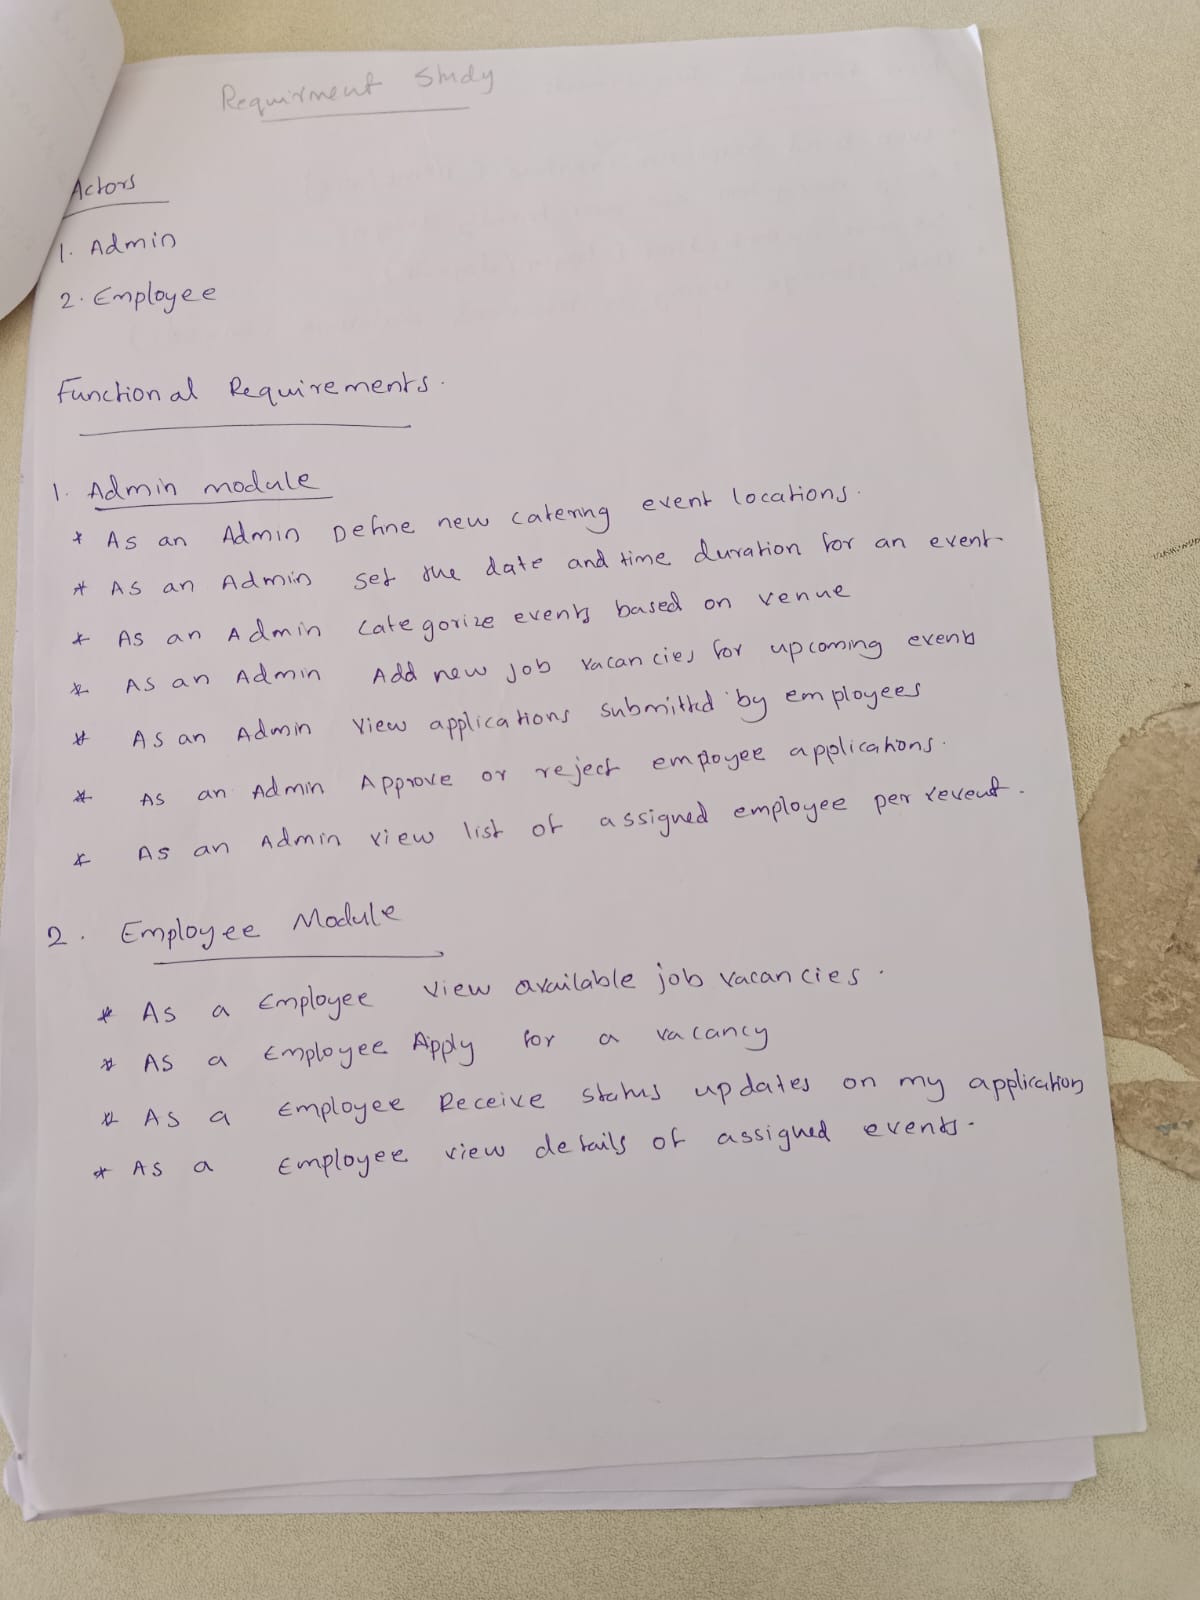 Requirment Study
Actors
1. Admin
2. Employee
Functional Requirements.
1. Admin module
* As an Admin Define new catering event locations.
* As an Admin set the date and time duration for an event
* As an Admin categorize events based on venue
* As an Admin Add new job vacancies for upcoming events
* As an Admin View applications submitted by employees
* As an Admin Approve or reject empoyee applications.
* As an Admin view list of assigned employee per
2. Employee Module
* As a Employee view available job vacancies.
* As a Employee Apply for a vacancy
* As a Employee Receive status updates on my application
* As a Employee view details of assigned events.